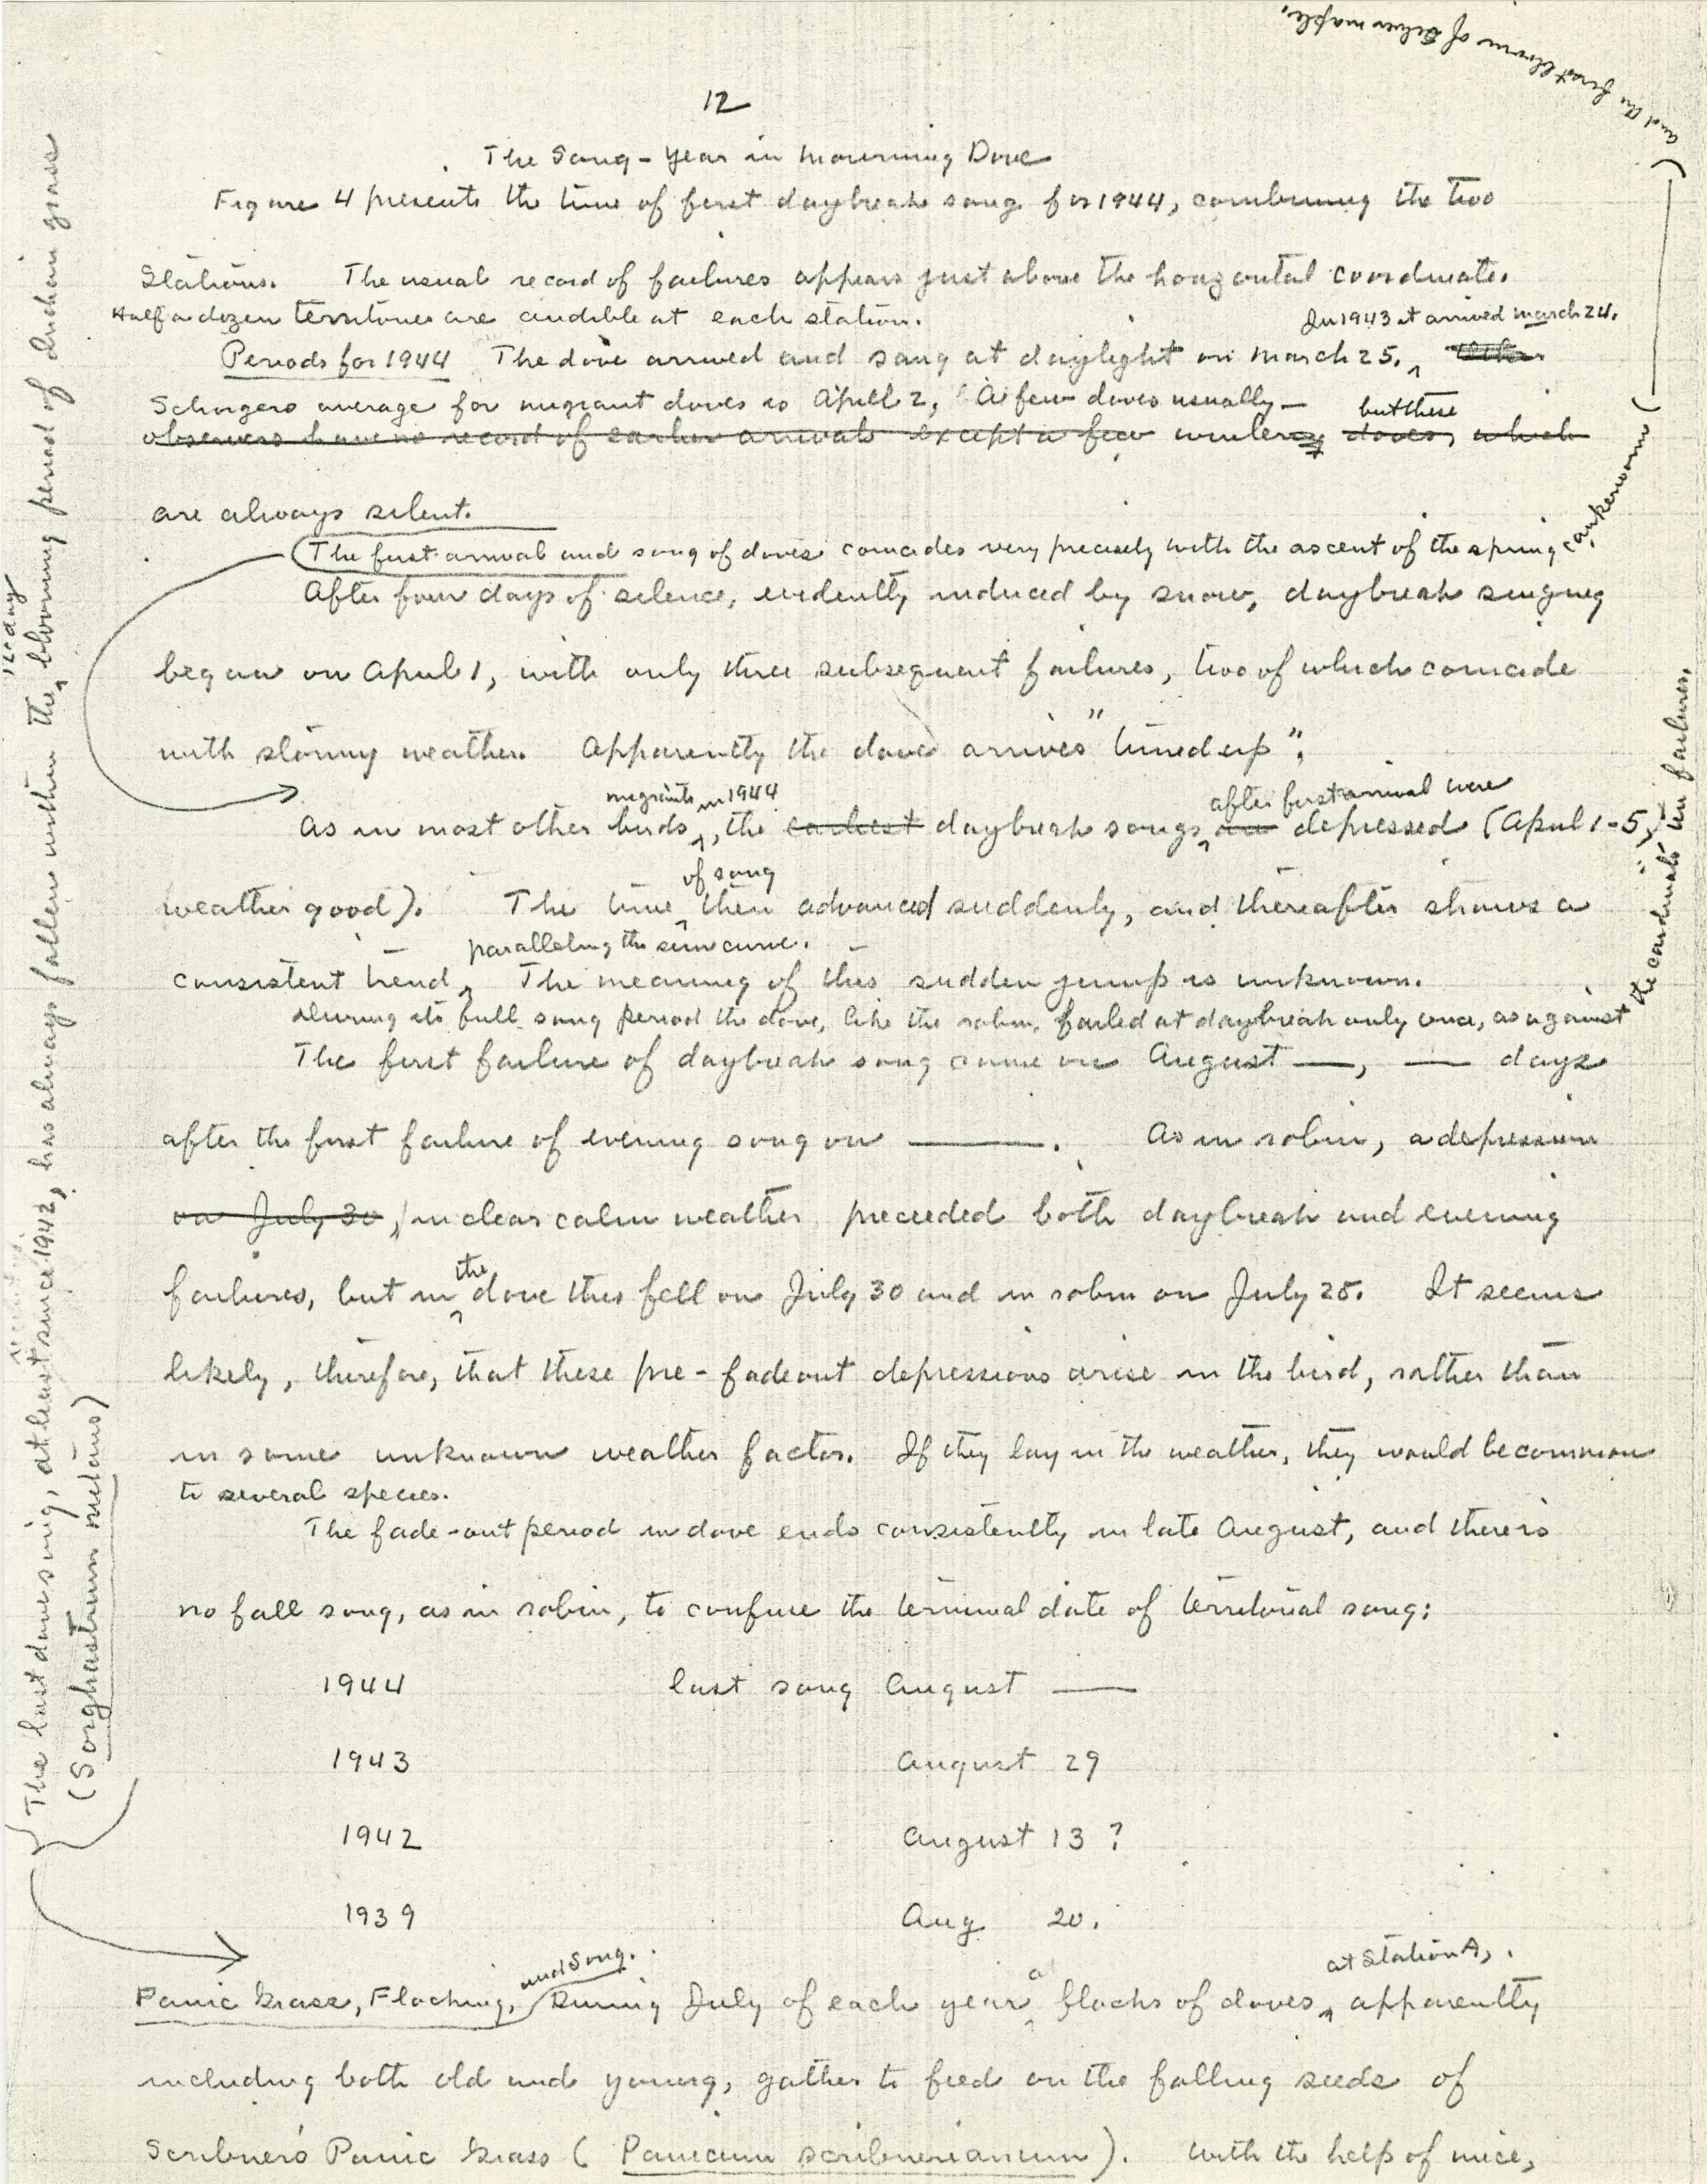 12
The Song-Year in Mourning Dove
Figure 4 presents the time of first daybreak song for 1944, combining the two
Stations. The usual record of failures appears just above the horizontal coordinate.
Half a dozen territories are audible at each station.
In 1943 it arrived March 24.
Periods for 1944 The dove arrived and sang at daylight on March 25.
Schorgers average for migrant doves is April 2, A few doves usually
but these
observers have no record of earlier arrivals except a few wintering doves, which
are always silent.
The first arrival and song of doves coincides very precisely with the ascent of the spring
cankerworm
and the first bloom of silver maple.
After four days of silence, evidently induced by snow, daybreak singing
began on April 1, with only three subsequent failures, two of which coincide
with stormy weather. Apparently the dove arrives "tuned up".
migrants in 1944
after first arrival were
As in most other birds, the earliest daybreak songs are depressed (April 1-5,
of song
weather good). The time then advanced suddenly, and thereafter shows a
paralleling the sun curve.
consistent trend. The meaning of this sudden jump is unknown.
During its full song period the dove, like the robin, failed at daybreak only once, as against
the cardinal's ten failures.
The first failure of daybreak song came on August —, — days
after the first failure of evening song on ——. As in robin, a depression
on July 30, in clear calm weather, preceded both daybreak and evening
the
failures, but in dove this fell on July 30 and in robin on July 28. It seems
likely, therefore, that these pre-fadeout depressions arise in the bird, rather than
in some unknown weather factor. If they lay in the weather, they would be common
to several species.
The fade-out period in dove ends consistently in late August, and there is
no fall song, as in robin, to confuse the terminal date of territorial song:
1944 last song August —
1943 August 29
1942 August 13 ?
1939 Aug 20.
12-day
The last dove song, at least since 1942, has always fallen within the blooming period of Indian grass
(Sorghastrum nutans)
and Song.
a
at Station A,
Panic Grass, Flocking, During July of each year flocks of doves, apparently
including both old and young, gather to feed on the falling seeds of
Scribner's Panic Grass (Panicum scribnerianum). With the help of mice,